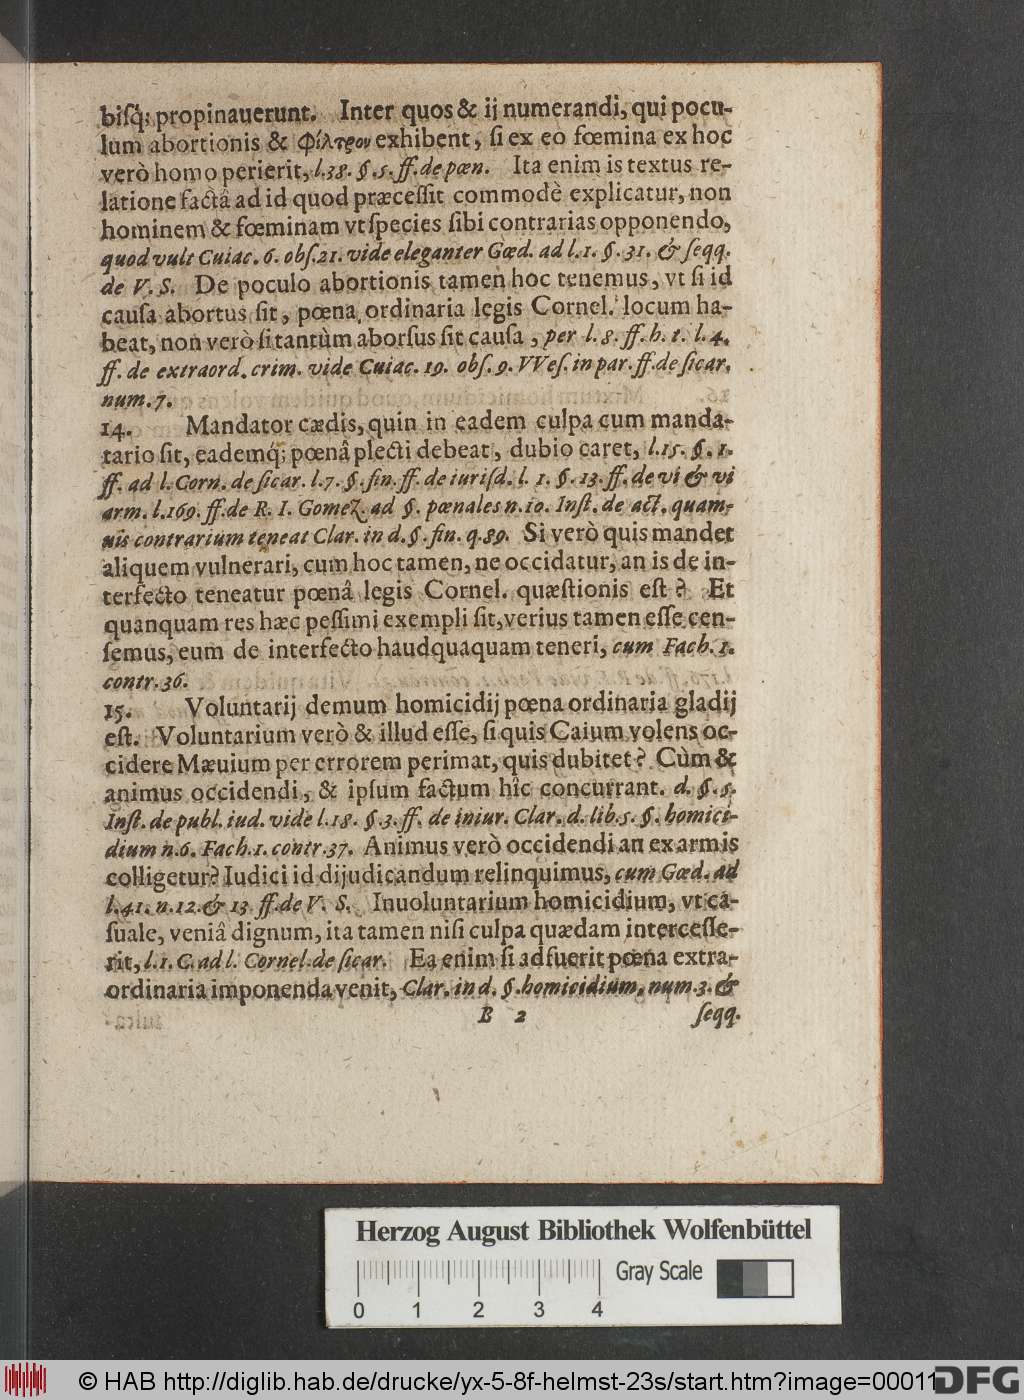 biſq́; propinauerunt. Inter quos & ij numerandi, qui pocu-
lum abortionis & φίλτρον exhibent, ſi ex eo fœmina ex hoc
verò homo perierit, l.38. §.5. ff. de pœn. Ita enim is textus re-
latione factâ ad id quod præceſſit commodè explicatur, non
hominem & fœminam vt ſpecies ſibi contrarias opponendo,
quod vult Cuiac. 6. obſ.21. vide eleganter Gœd. ad l.1. §. 31. & ſeqq.
de V. S. De poculo abortionis tamen hoc tenemus, vt ſi id
cauſa abortus ſit, pœna ordinaria legis Cornel. locum ha-
beat, non verò ſi tantùm aborſus ſit cauſa, per l. 8. ff. h. t. l. 4.
ff. de extraord. crim. vide Cuiac. 19. obſ. 9. VVeſ. in par. ff. de ſicar.
num. 7.
14. Mandator cædis, quin in eadem culpa cum manda-
tario ſit, eademq́; pœnâ plecti debeat, dubio caret, l.15. §. 1.
ff. ad l. Corn. de ſicar. l.7. §. fin. ff. de iuriſd. l. 1. §. 13. ff. de vi & vi
arm. l.169. ff. de R. I. Gomez. ad §. pœnales n.10. Inſt. de act. quam-
uis contrarium teneat Clar. in d. §. fin. q.89. Si verò quis mandet
aliquem vulnerari, cum hoc tamen, ne occidatur, an is de in-
terfecto teneatur pœnâ legis Cornel. quæſtionis eſt? Et
quanquam res hæc peſſimi exempli ſit, verius tamen eſſe cen-
ſemus, eum de interfecto haudquaquam teneri, cum Fach. 1.
contr. 36.
15. Voluntarij demum homicidij pœna ordinaria gladij
eſt. Voluntarium verò & illud eſſe, ſi quis Caium volens oc-
cidere Mæuium per errorem perimat, quis dubitet? Cùm &
animus occidendi, & ipſum factum hîc concurrant. d. §. 5.
Inſt. de publ. iud. vide l.18. §.3. ff. de iniur. Clar. d. lib.5. §. homici-
dium n.6. Fach.1. contr.37. Animus verò occidendi an ex armis
colligetur? Iudici id dijudicandum relinquimus, cum Gœd. ad
l.41. n.12. & 13 ff. de V. S. Inuoluntarium homicidium, vt ca-
ſuale, veniâ dignum, ita tamen niſi culpa quædam interceſſe-
rit, l.1. C. ad l. Cornel. de ſicar. Ea enim ſi adfuerit pœna extra-
ordinaria imponenda venit, Clar. in d. §. homicidium, num.3. &
B 2 ſeqq.
Herzog August Bibliothek Wolfenbüttel
Gray Scale
0 1 2 3 4
© HAB http://diglib.hab.de/drucke/yx-5-8f-helmst-23s/start.htm?image=00011
DFG